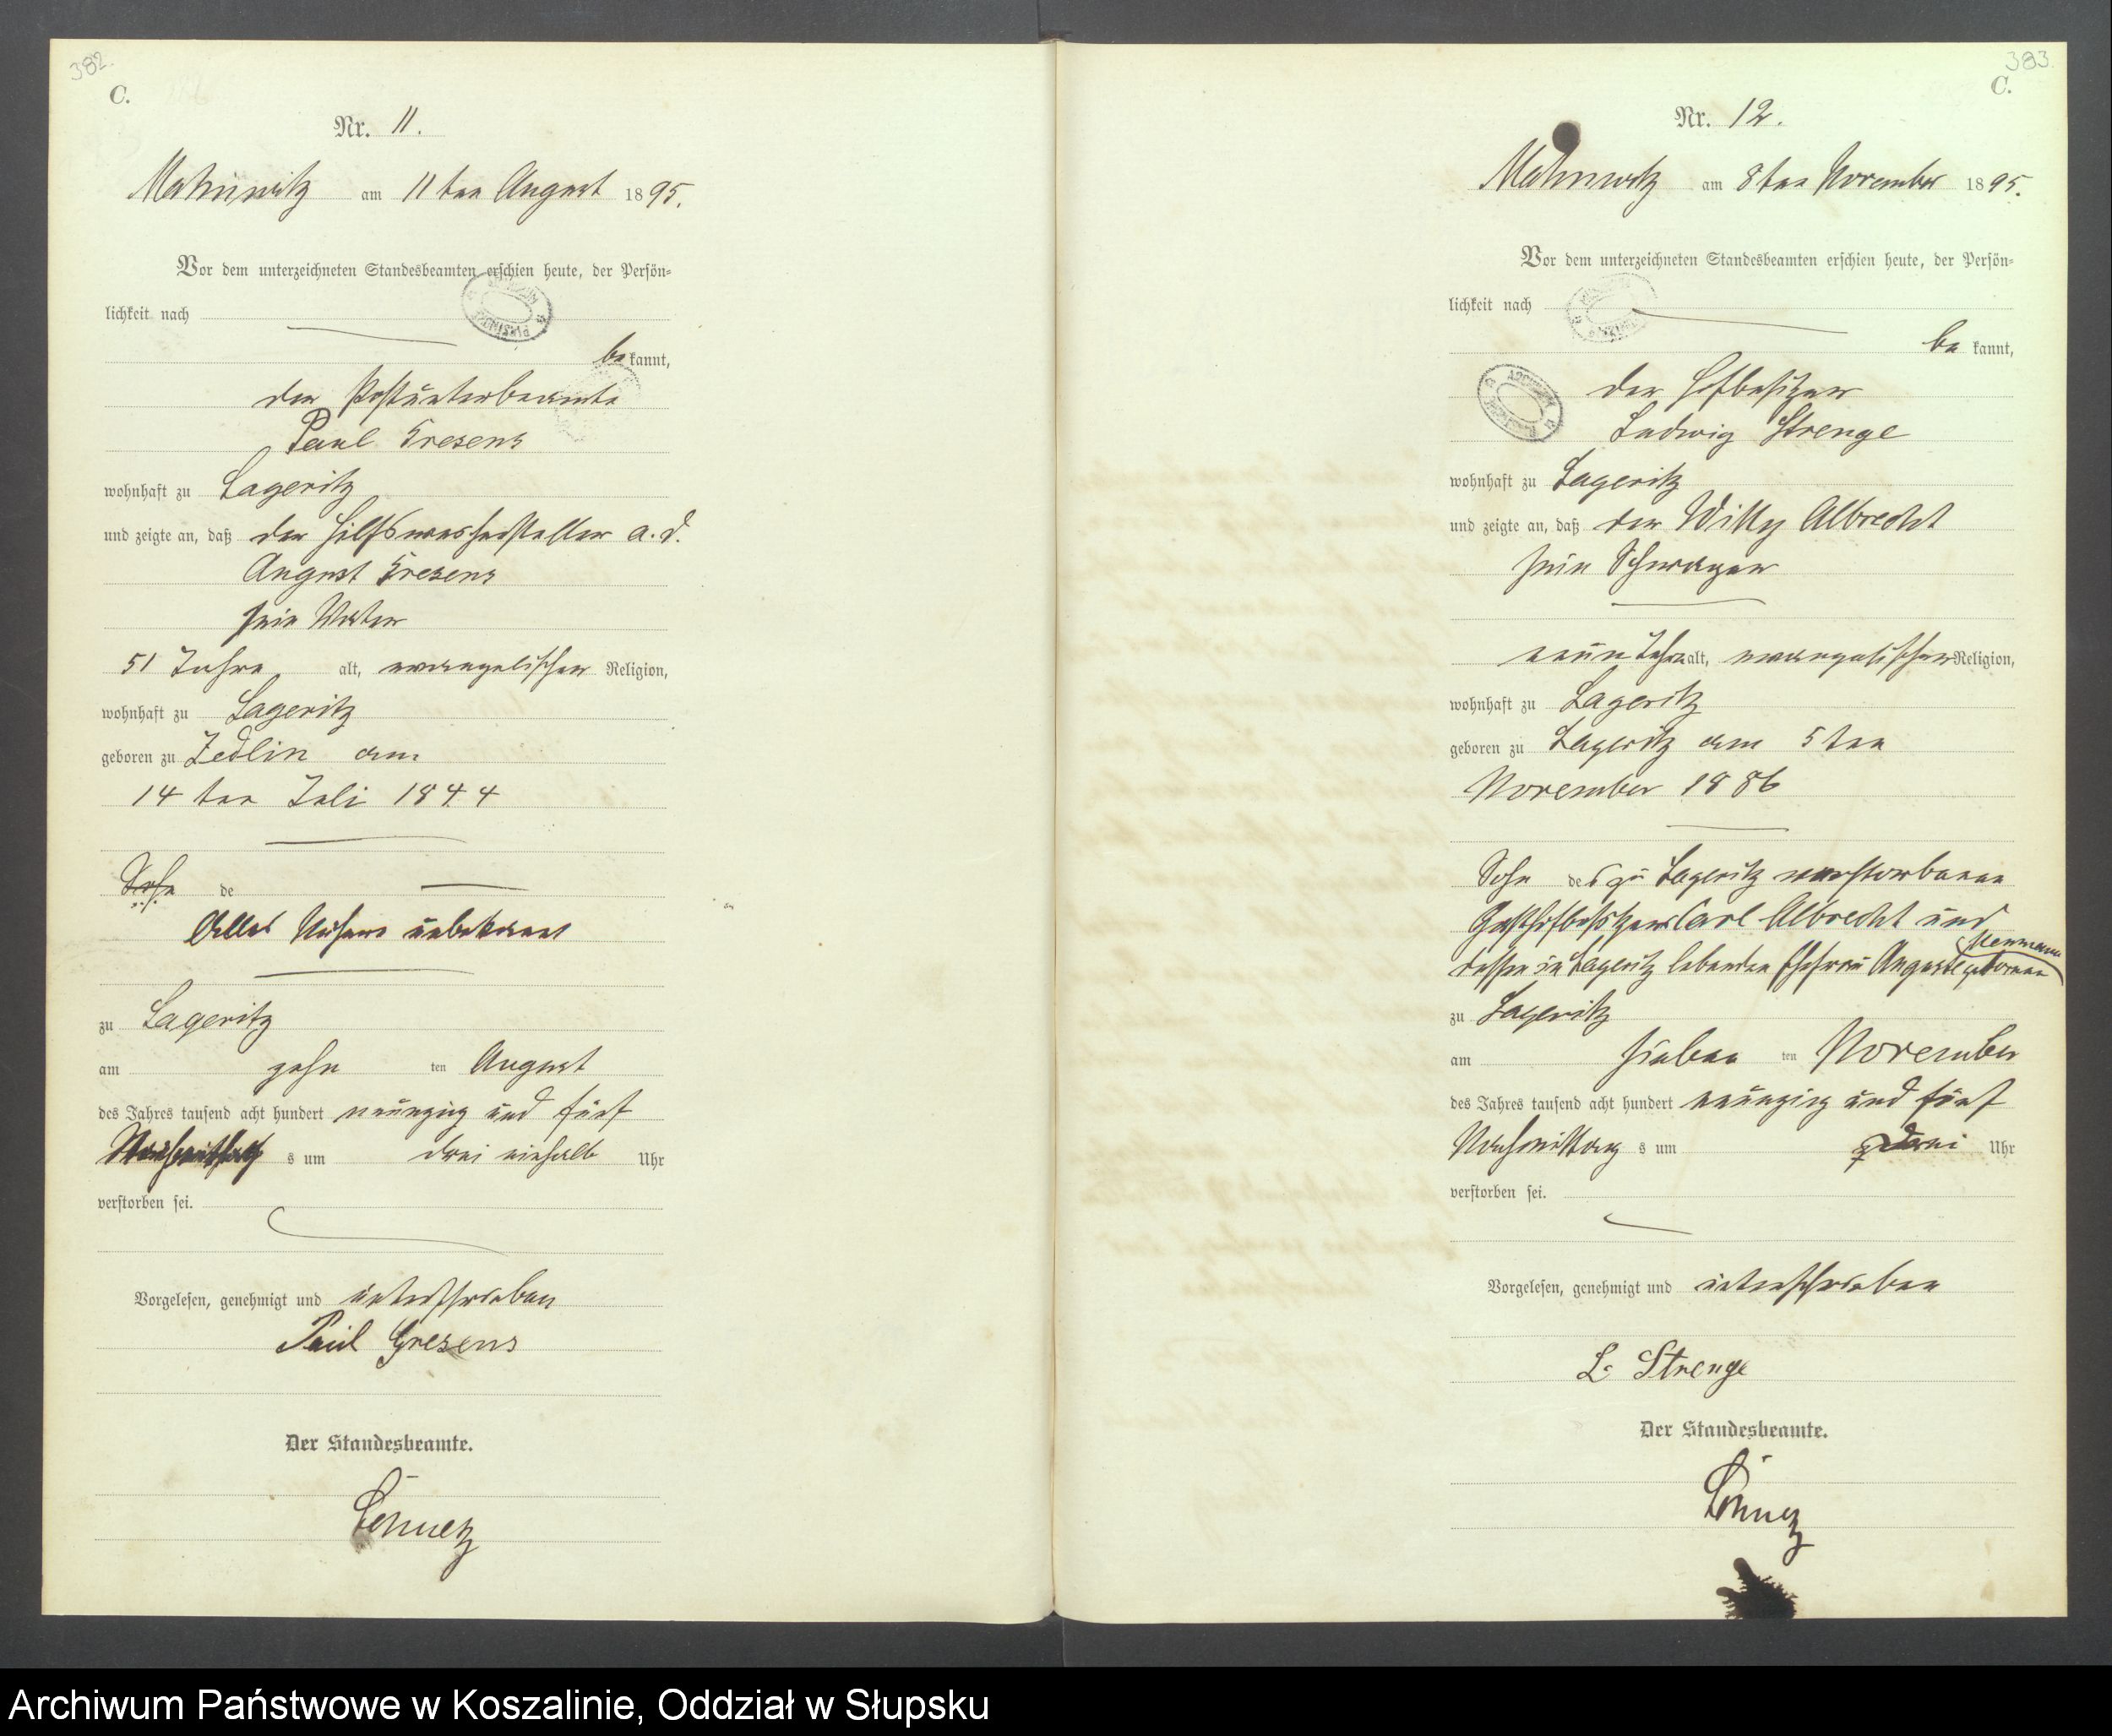 382.
C.
Nr. 11.
Mahnwitz am 11ten August 1895.
Vor dem unterzeichneten Standesbeamten erschien heute, der Persön-
lichkeit nach
bekannt,
der Postunterbeamte
Paul Gresens
wohnhaft zu Lageritz
und zeigte an, daß der Hilfsweichensteller a. d.
August Gresens
sein Vater
51 Jahre alt, evangelischer Religion,
wohnhaft zu Lageritz
geboren zu Zedlin am
14ten Juli 1844
Sohn de
Alles Nähere unbekannt
zu Lageritz
am zehn ten August
des Jahres tausend acht hundert neunzig und fünf
Nachmittags um drei einhalb Uhr
verstorben sei.
Vorgelesen, genehmigt und unterschrieben
Paul Gresens
Der Standesbeamte.
383.
C.
Nr. 12.
Mahnwitz am 8ten November 1895.
Vor dem unterzeichneten Standesbeamten erschien heute, der Persön-
lichkeit nach
bekannt,
der Hofbesitzer
Ludwig Strenge
wohnhaft zu Lageritz
und zeigte an, daß der Willy Albrecht
sein Schwager
neun Jahre alt, evangelischer Religion,
wohnhaft zu Lageritz
geboren zu Lageritz am 5ten
November 1886
Sohn des zu Lageritz verstorbenen
Gasthofbesitzers Carl Albrecht und
dessen in Lageritz lebenden Ehefrau Auguste geborene
zu Lageritz
am sieben ten November
des Jahres tausend acht hundert neunzig und fünf
Nachmittags um drei Uhr
verstorben sei.
Vorgelesen, genehmigt und unterschrieben
L. Strenge
Der Standesbeamte.
Archiwum Państwowe w Koszalinie, Oddział w Słupsku